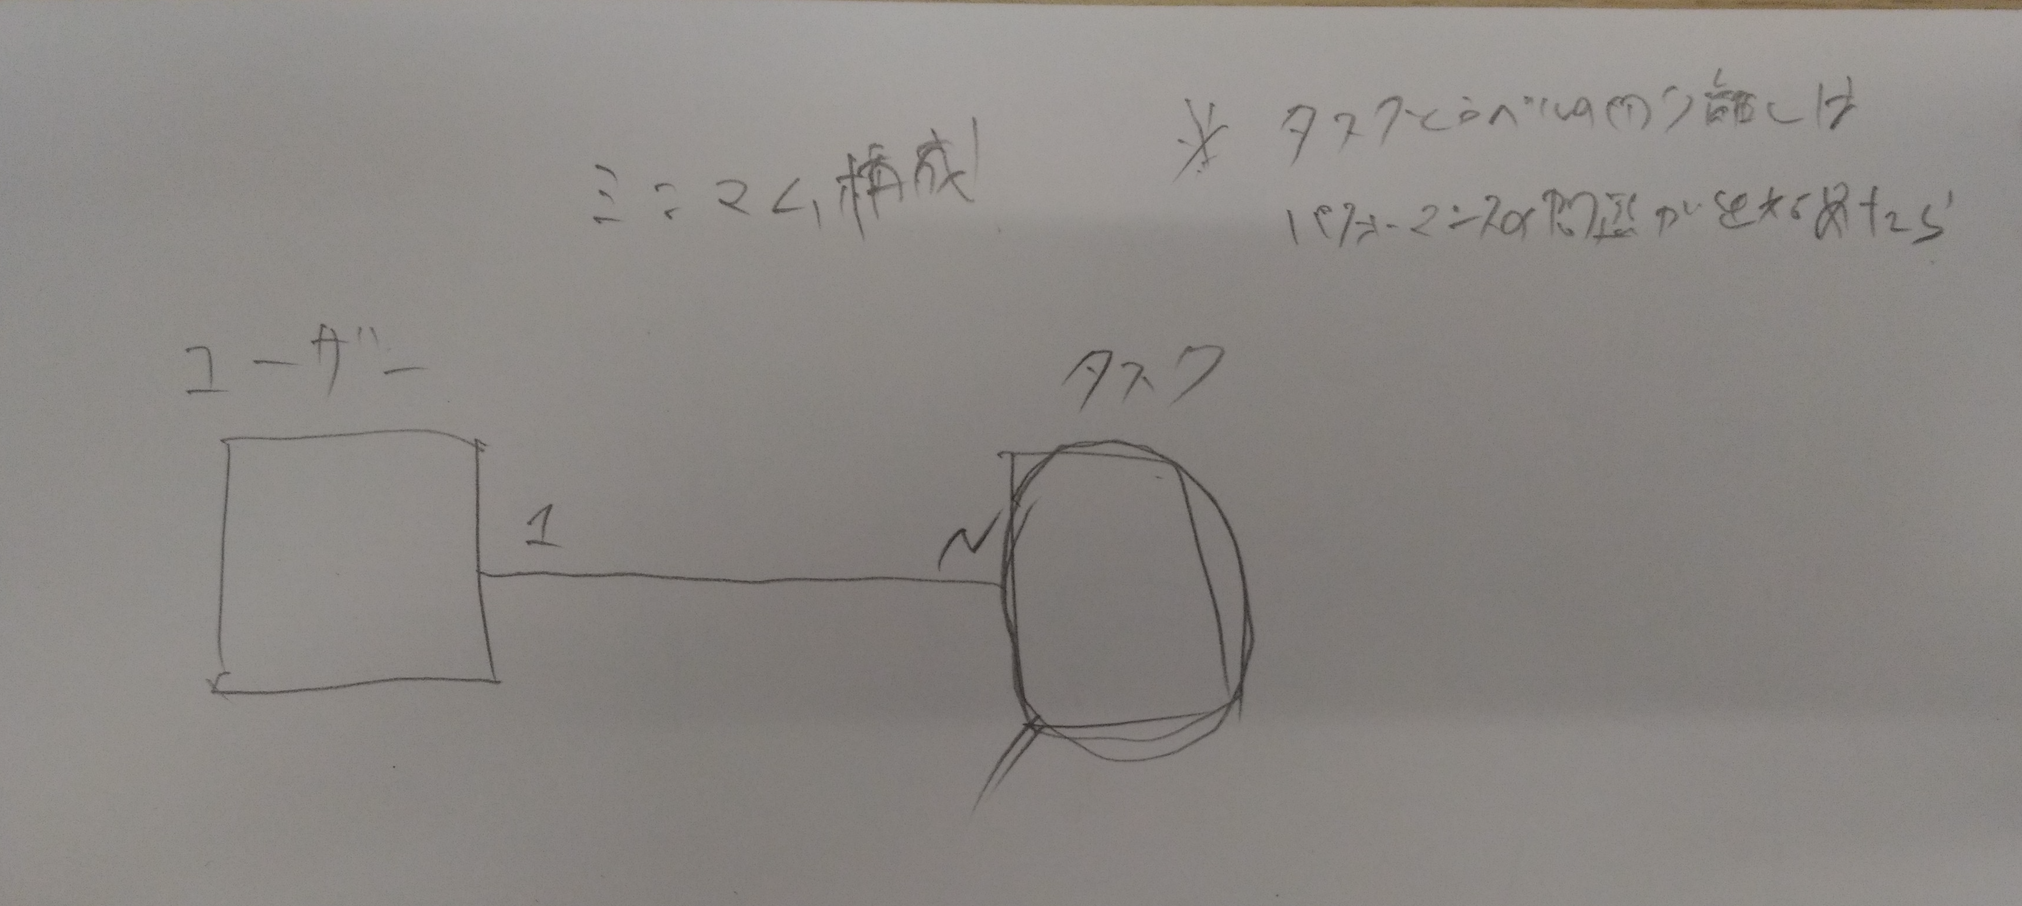 ミニマム構成
※ タスクとラベルの
パフォーマンスの問題が
ユーザー
タスク
1
N